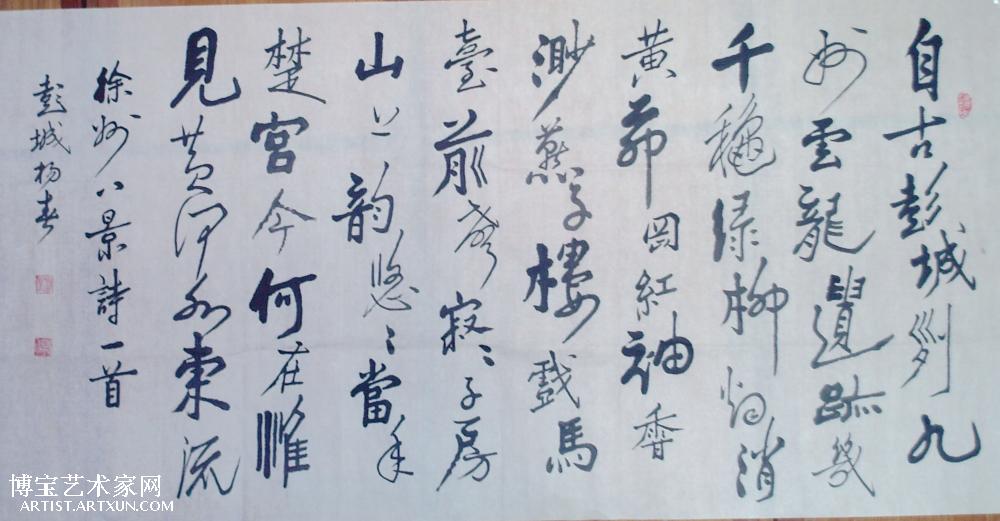 自古彭城列九
州雲龍遺跡幾
千穐緑柳烟消
黄茆岡紅袖香
渺燕子樓戲馬
臺前聲寂〻子房
山上韵悠〻當年
楚宫今何在惟
見黄河水東流
徐州八景詩一首
彭城杨春
博宝艺术家网
ARTIST.ARTXUN.COM